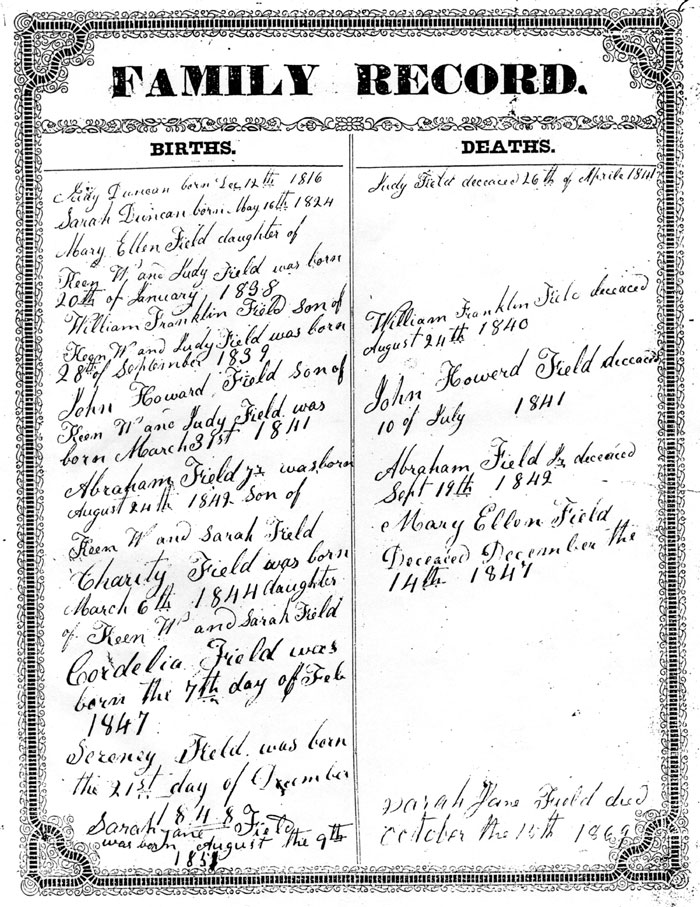 FAMILY RECORD.
BIRTHS.
Judy Duncan born Dec 12th 1816
Sarah Duncan born May 16th 1824
Mary Ellen Field daughter of
Keen W and Judy Field was born
20th of January 1838
William Franklin Field Son of
Keen W and Judy Field was born
28th of September 1839
John Howard Field Son of
Keen W and Judy Field was
born March 31st 1841
Abraham Field Jr was born
August 24th 1842 Son of
Keen W and Sarah Field
Charity Field was born
March 6th 1844 daughter
of Keen W and Sarah Field
Cordelia Field was
born the 7th day of Feb
1847
Sereney Field was born
the 21st day of December
1848
Sarah Jane Field
was born August the 9th
1851
DEATHS.
Judy Field deceaced 26th of Aprile 1841
William Franklin Field deceaced
August 24th 1840
John Howerd Field deceaced
10 of July 1841
Abraham Field Jr deceaced
Sept 19th 1842
Mary Ellen Field
Deceaced December the
14th 1847
Sarah Jane Field died
October the 15th 1869